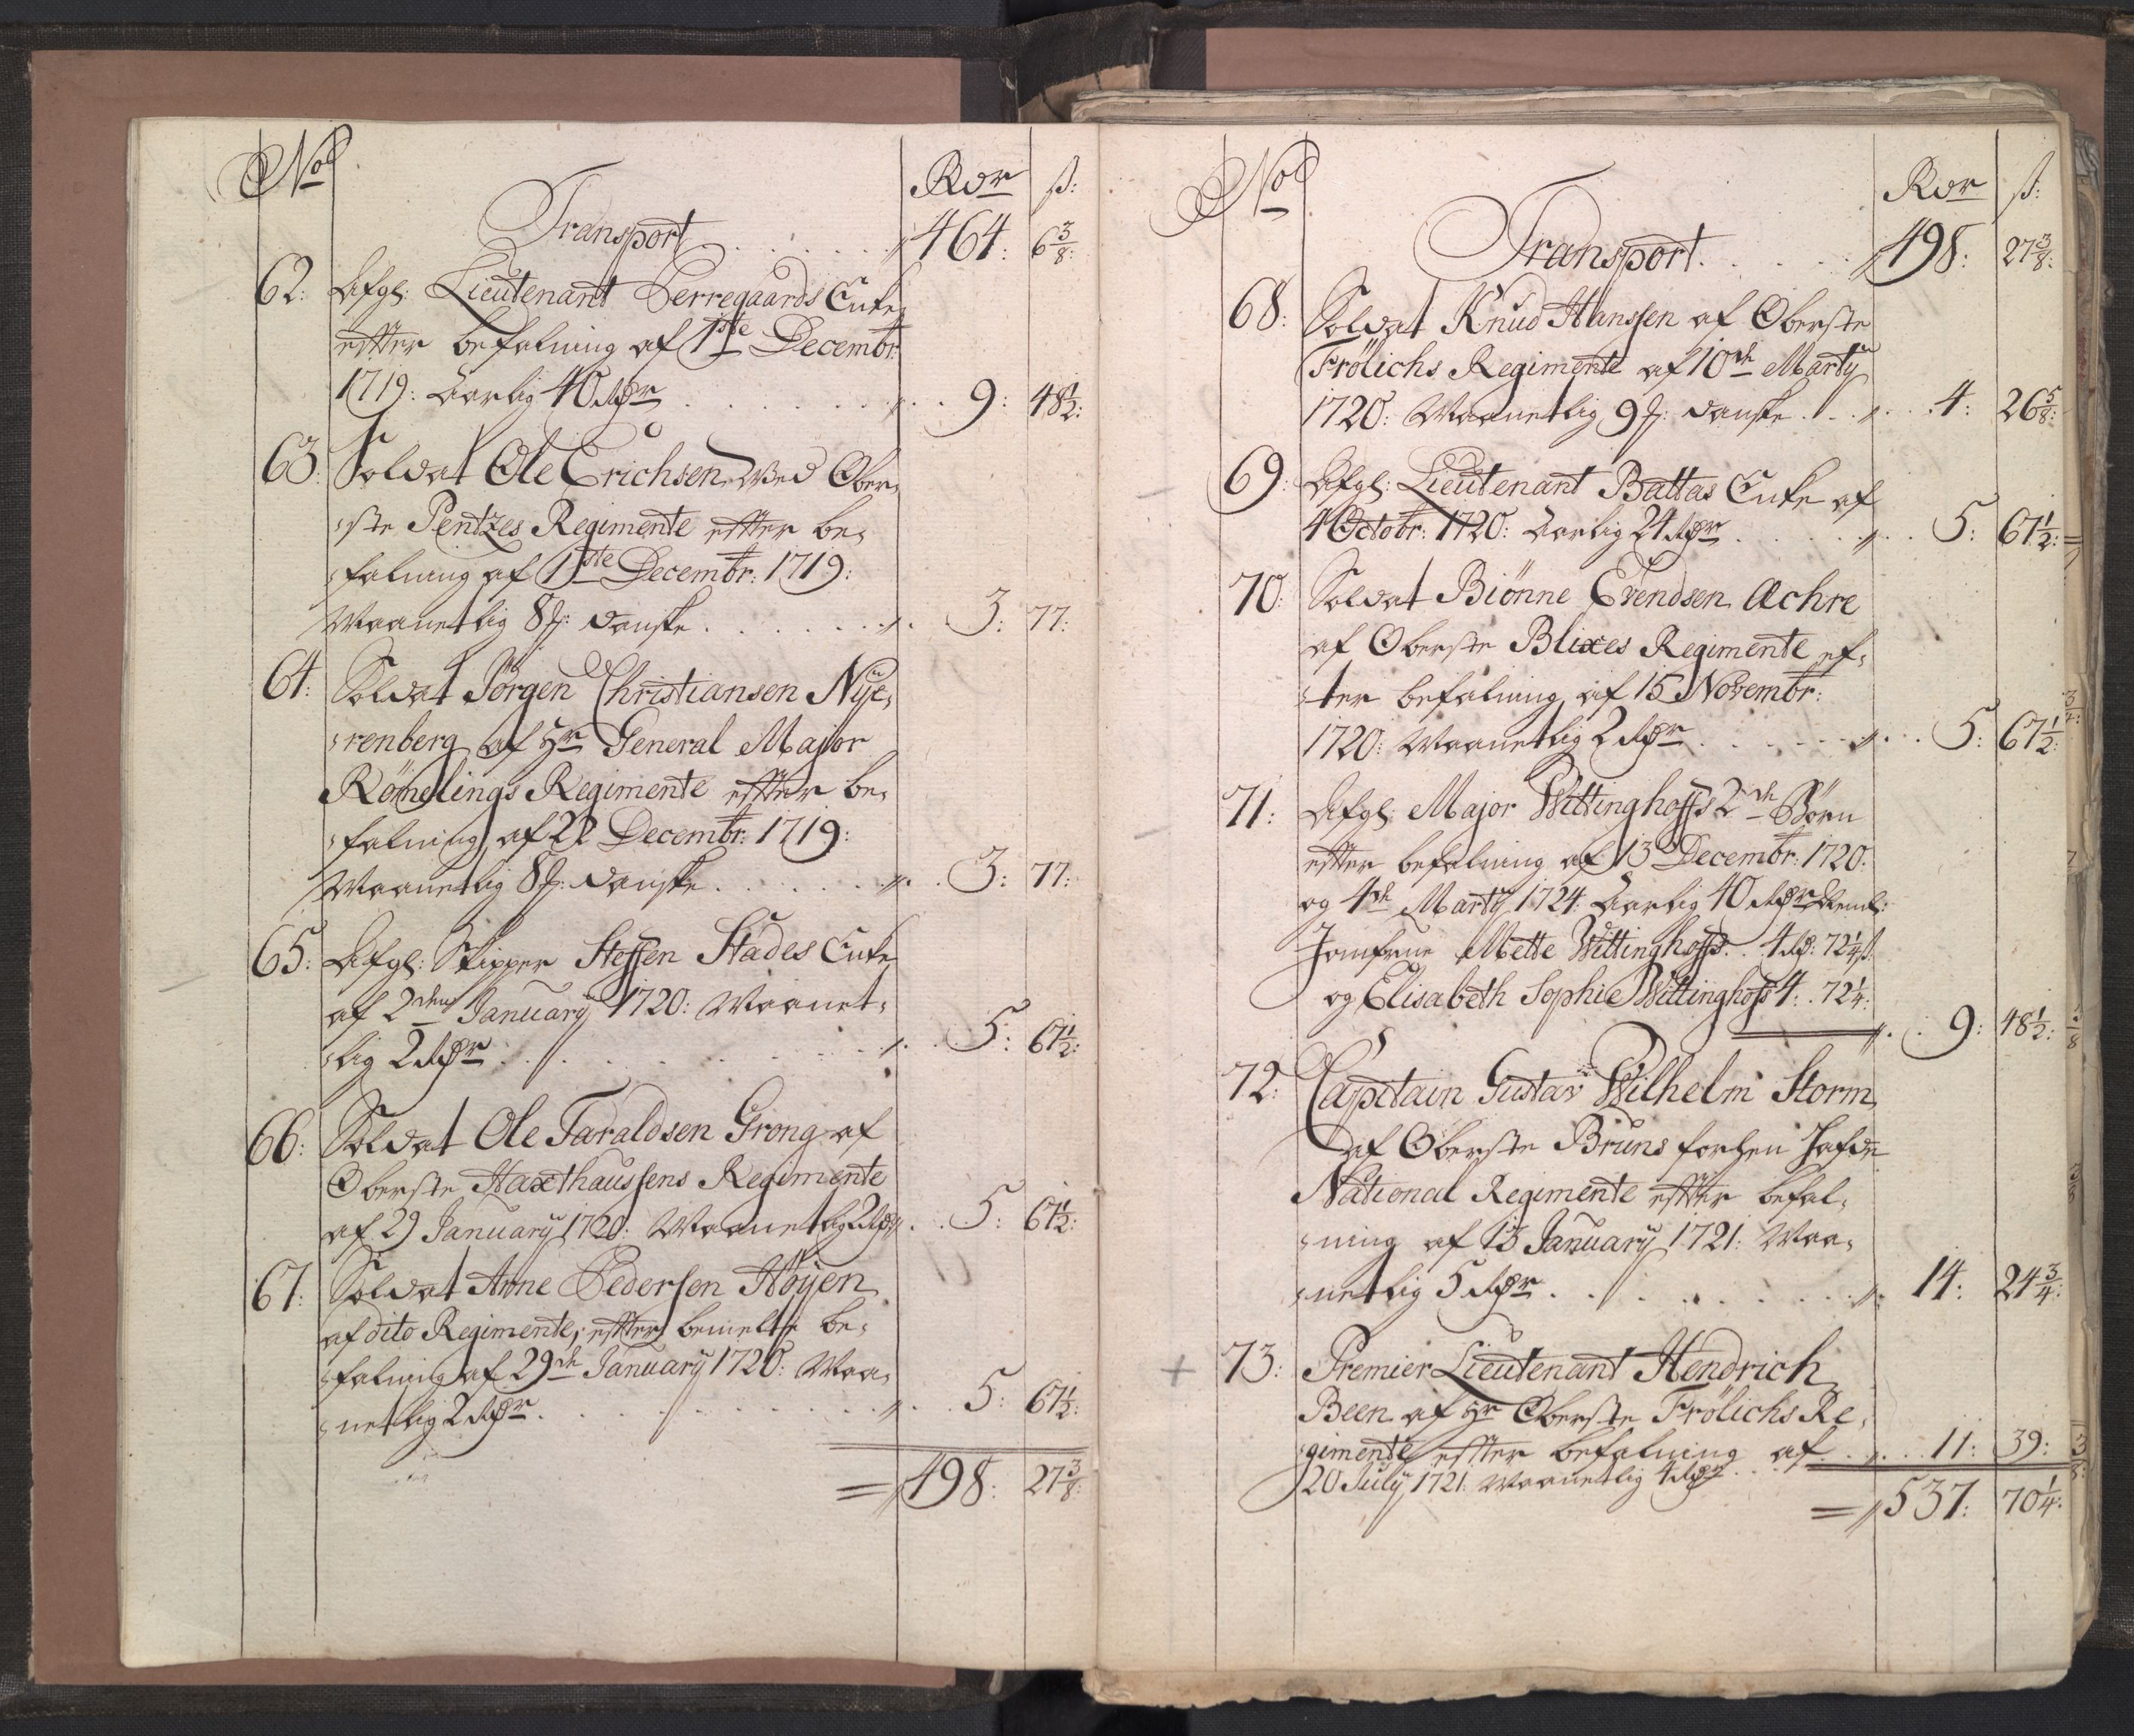 No
Rdr ß:
Transport . . . . . . 464: 6 3/8:
62: Afgl: Lieutenant Berregaards Enke
efter befalning af 1ste Decembr:
1719: Aarlig 40 Rdr . . . . . . 9: 48 1/2:
63: Soldat Ole Erichsen ved Ober-
-ste Pentzes Regimente efter be-
-falning af 1ste Decembr: 1719:
Maanetlig 8 ß: danske . . . . . . 3: 77:
64: Soldat Jörgen Christiansen Nye-
-renberg af Hr General Major
Römelings Regimente efter be-
-falning af 22 Decembr: 1719:
Maanetlig 8 ß: danske . . . . . . 3: 77:
65: Afgl: Skipper Steffen Stades Enke
af 2den January 1720: Maanet-
-lig 2 Rdr . . . . . . 5: 67 1/2:
66: Soldat Ole Taraldsen Grong af
Oberste Haxthaussens Regimente
af 29 January 1720: Maanetlig 2 Rdr . . 5: 67 1/2:
67: Soldat Arne Pedersen Höyen
af dito Regimente, efter bemelte be-
-falning af 29de January 1720: Maa-
-netlig 2 Rdr . . . . . . 5: 67 1/2:
= 498: 27 3/8:
No
Rdr ß:
Transport . . . . . 498: 27 3/8:
68: Soldat Knud Hanssen af Oberste
Frölichs Regimente af 10de Marty
1720: Maanetlig 9 ß: danske . . . 4: 26 5/8:
69: Afgl: Lieutenant Battas Enke af
4 Octobr: 1720: Aarlig 24 Rdr . . . . 5: 67 1/2:
70: Soldat Biönne Evendsen Achre
af Oberste Blixes Regimente ef-
-ter befalning af 15 Novembr:
1720: Maanetlig 2 Rdr . . . . . . 5: 67 1/2:
71: Afgl: Major Wittinghoffs 2de Börn
efter befalning af 13 Decembr: 1720:
og 4de Marty 1724: Aarlig 40 Rdr Neml:
Jomfrue Mette Wittinghoffs . . 4 Rd: 72 1/4 ß
og Elisabeth Sophie Wittinghofs 4: . 72 1/4:
9: 48 1/2:
72: Capitain Gustav Wilhelm Storm
af Oberste Bruns forhen hafde
National Regimente efter befal-
-ning af 13 January 1721: Maa-
-netlig 5 Rdr . . . . . . 14: 24 3/4:
+ 73: Premier Lieutenant Hendrich
Been af Hr Oberste Frölichs Re-
-gimente efter befalning af . . . . 11: 39:
20 July 1721 Maanetlig 4 Rdr . .
= 537: 70 1/4: